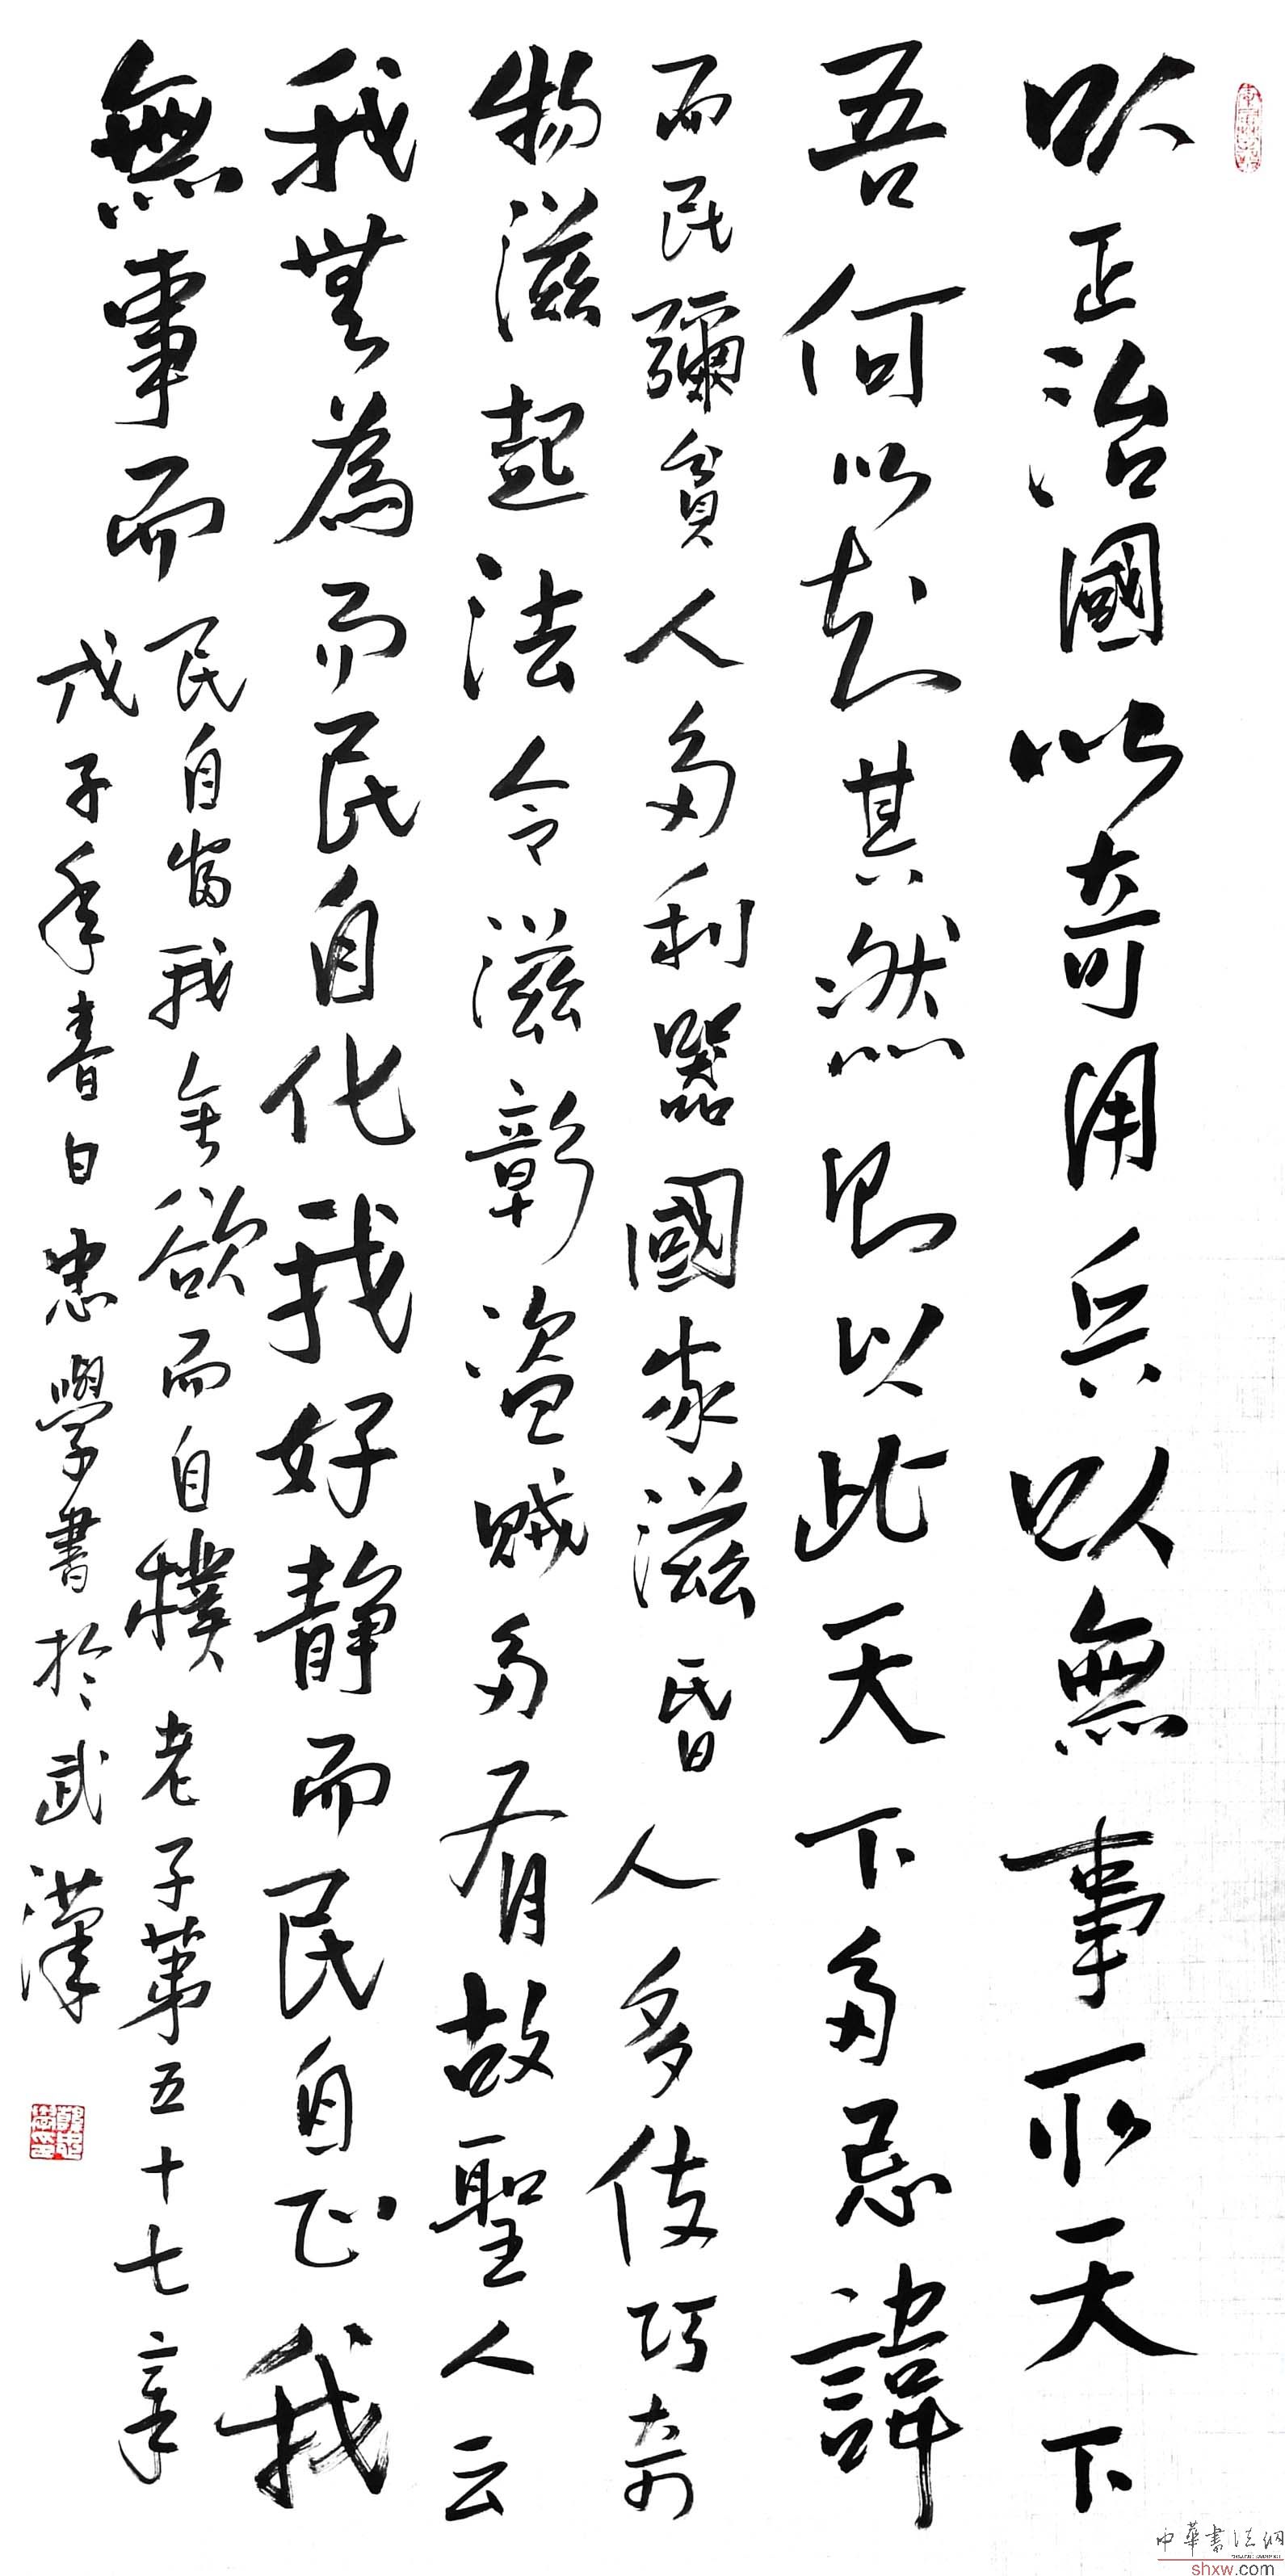 以正治國以奇用兵以無事取天下
吾何以知其然哉以此天下多忌諱
而民彌貧人多利器國家滋昏人多伎巧奇
物滋起法令滋彰盜賊多有故聖人云
我無為而民自化我好静而民自正我
無事而民自富我无欲而自樸老子第五十七章
戊子年春日忠學書於武漢
中華書法網
shxw.com